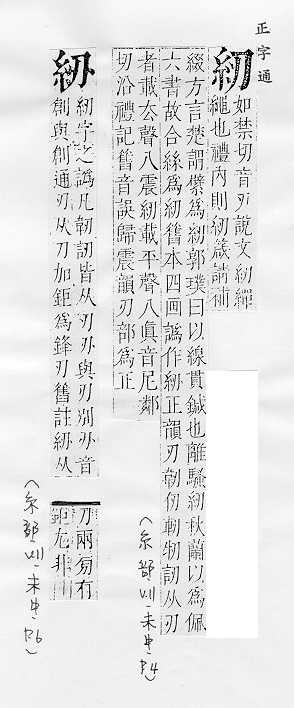 正字通
紉
如禁切音刃說文紉繟
繩也禮內則紉箴請補
綴方言楚謂襞爲紉郭璞曰以線貫鍼也離騷紉秋蘭以爲佩
六書故合絲爲紉舊本四画譌作紉正韻刃韌仞軔牣訒从刃
者載去聲八震紉載平聲八眞音尼鄰
切沿禮記舊音誤歸震韻刃部爲正
(糸部VII-未中.P4)
紉字之譌凡韌訒皆从刃刅與刃別刅音
創與創通刃从刀加鉅爲鋒刃舊註紉从
刀兩旁有
鉅尤非
(糸部VII-未中.P6)